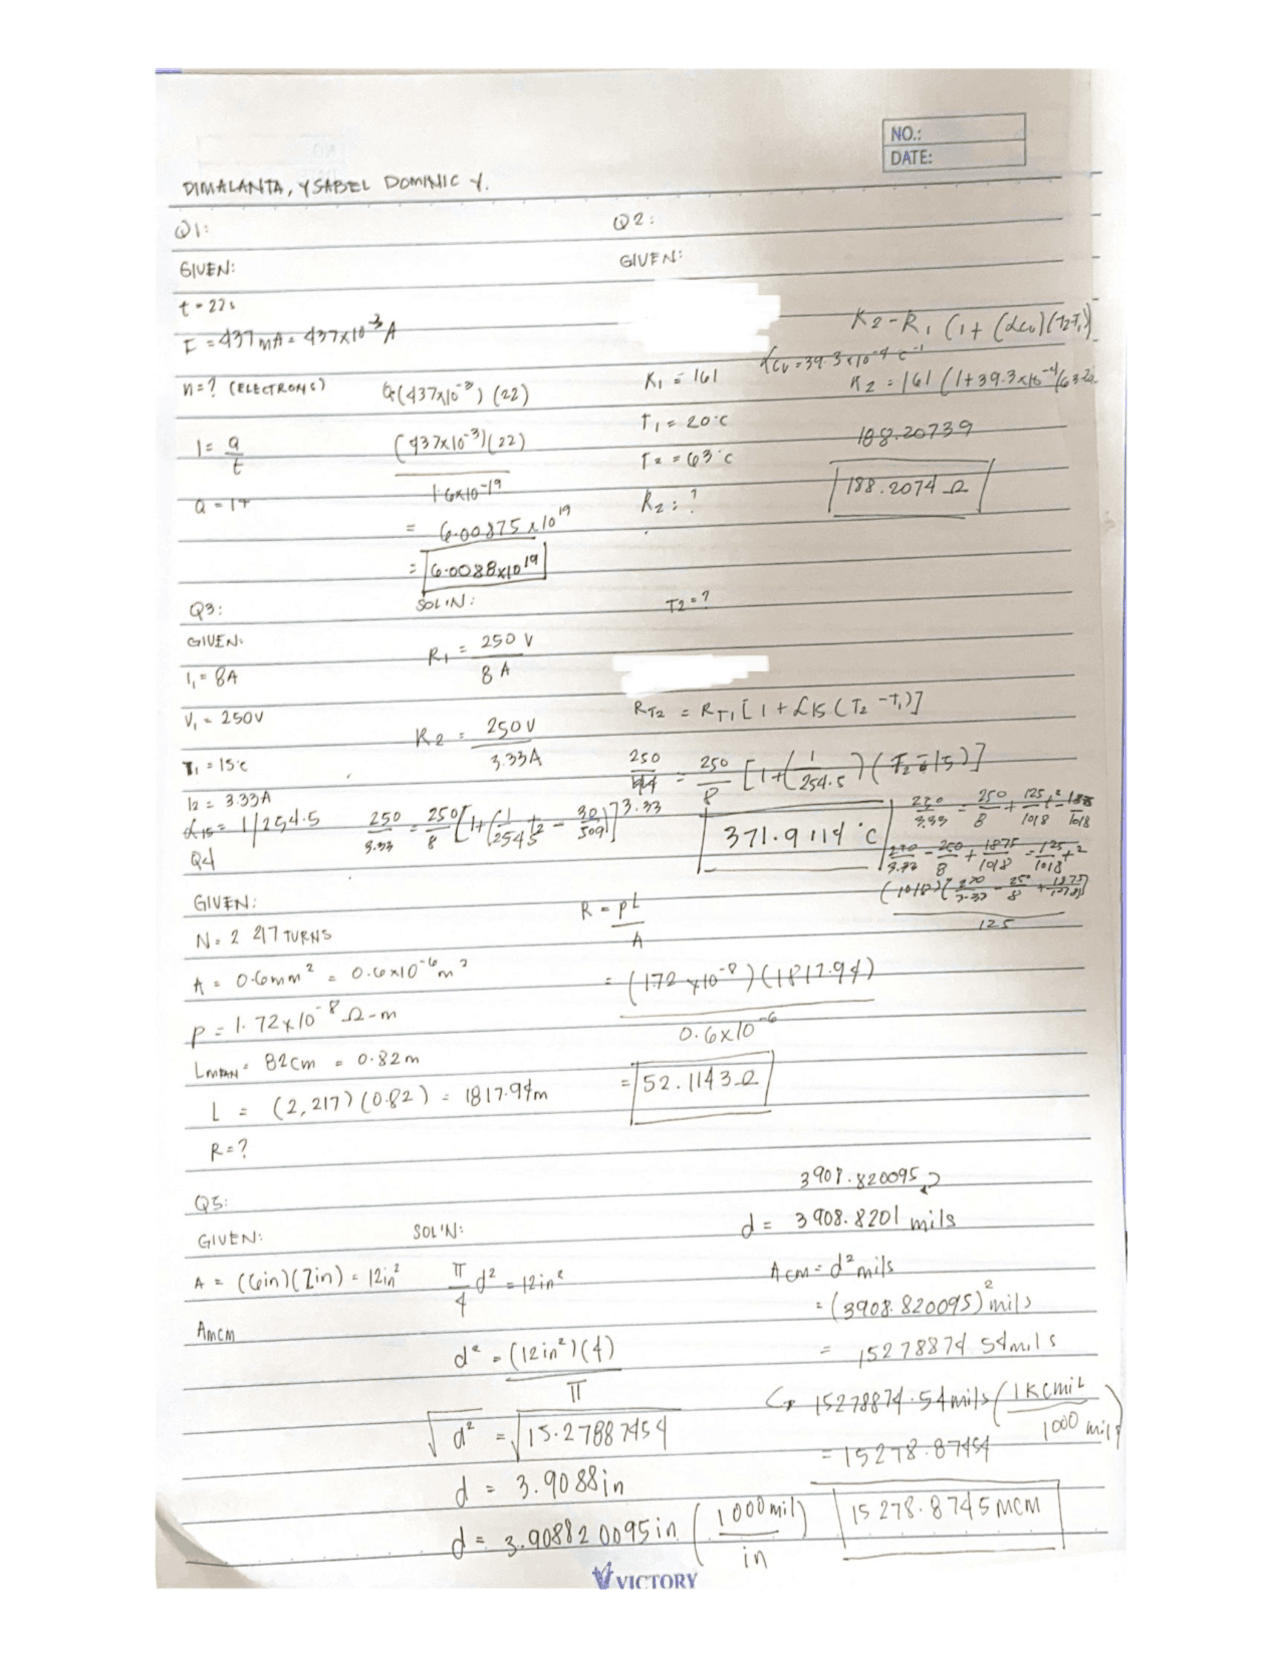 NO.:
DATE:
DIMALANTA, YSABEL DOMINIC Y.
Q1:
GIVEN:
t = 22s
I = 437 mA = 437x10^-3 A
n = ? (ELECTRONS)
I = q/t
Q = It
Q(437x10^-3)(22)
(437x10^-3)(22)
1.6x10^-19
= 6.00875x10^19
= 6.0088x10^19
Q2:
GIVEN:
R1 = 161
T1 = 20°C
T2 = 63°C
R2 = ?
R2 - R1 (1 + (αcu)(T2-T1)
αcu = 39.3x10^-4 c^-1
R2 = 161 (1+39.3x10^-4(63-20
188.20739
188.2074 Ω
Q3:
GIVEN:
I1 = 8A
V1 = 250V
T1 = 15°C
I2 = 3.33A
α15 = 1/254.5
SOL'N:
R1 = 250 V / 8 A
R2 = 250V / 3.33A
T2 = ?
RT2 = RT1 [1 + α15 (T2 - T1)]
250 = 250/8 [1 + (1/254.5)(T2 - 15)]
3.33
371.9114 °C
125
Q4
GIVEN:
N = 2 217 TURNS
A = 0.6mm² = 0.6x10^-6 m²
ρ = 1.72x10^-8 Ω-m
LMEAN = 82cm = 0.82m
L = (2,217)(0.82) = 1817.94m
R = ?
R = ρL/A
= (1.72x10^-8)(1817.94)
0.6x10^-6
= 52.1143Ω
Q5:
GIVEN:
A = (6in)(2in) = 12in²
AMCM
SOL'N:
π/4 d² = 12in²
d² = (12in²)(4)
π
√d² = √15.27887454
d = 3.9088in
d = 3.908820095in (1000mil/in)
3908.820095
d = 3908.8201 mils
Acm = d² mils
= (3908.820095)² mils
= 15278874.54mils
15278874.54mils (1kcmil/1000 mils)
= 15278.87454
15278.8745 MCM
VICTORY